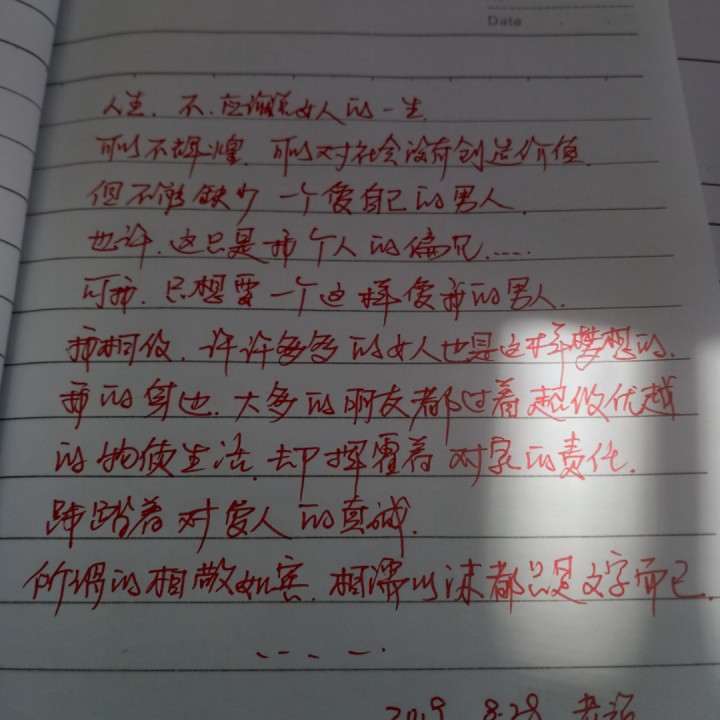 Date
人生. 不. 应该说女人的一生.
可以不辉煌. 可以对社会没有创造价值.
但不能缺少 一个爱自己的男人.
也许. 这只是我个人的偏见.....
可我. 只想要一个这样爱我的男人.
我相信. 许许多多的女人也是这样梦想的.
我的身边. 大多的朋友都过着超级优越
的物质生活. 却挥霍着对家的责任.
踌躇着对爱人的真诚.
所谓的相敬如宾. 相濡以沫都只是文字而已.
. . . . .
2019 8.28